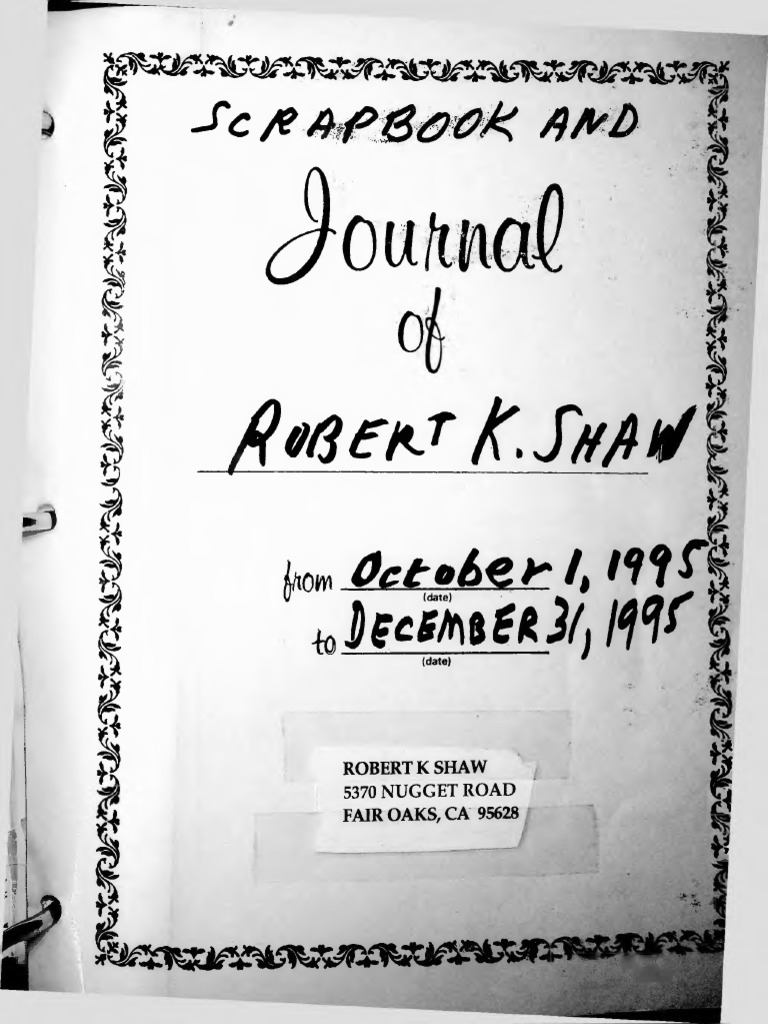 SCRAPBOOK AND
Journal
of
ROBERT K. SHAW
from October 1, 1995
(date)
to DECEMBER 31, 1995
(date)
ROBERT K SHAW
5370 NUGGET ROAD
FAIR OAKS, CA 95628